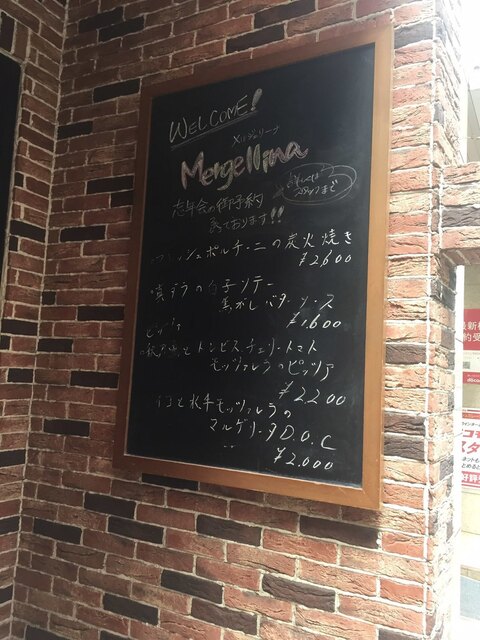 WELCOME!
メルジェリーナ
Mergellina
忘年会の御予約
承っております!!
詳しくは
スタッフまで
フレッシュポルチーニの炭火焼き
¥2,600
真ダラの白子ソテー
焦がしバターソース
¥1,600
ピッツァ
トンビスチェリートマト
モッツァレラのピッツァ
¥2200
水牛モッツァレラの
マルゲリータD.O.C
¥2,000
最新
docomo